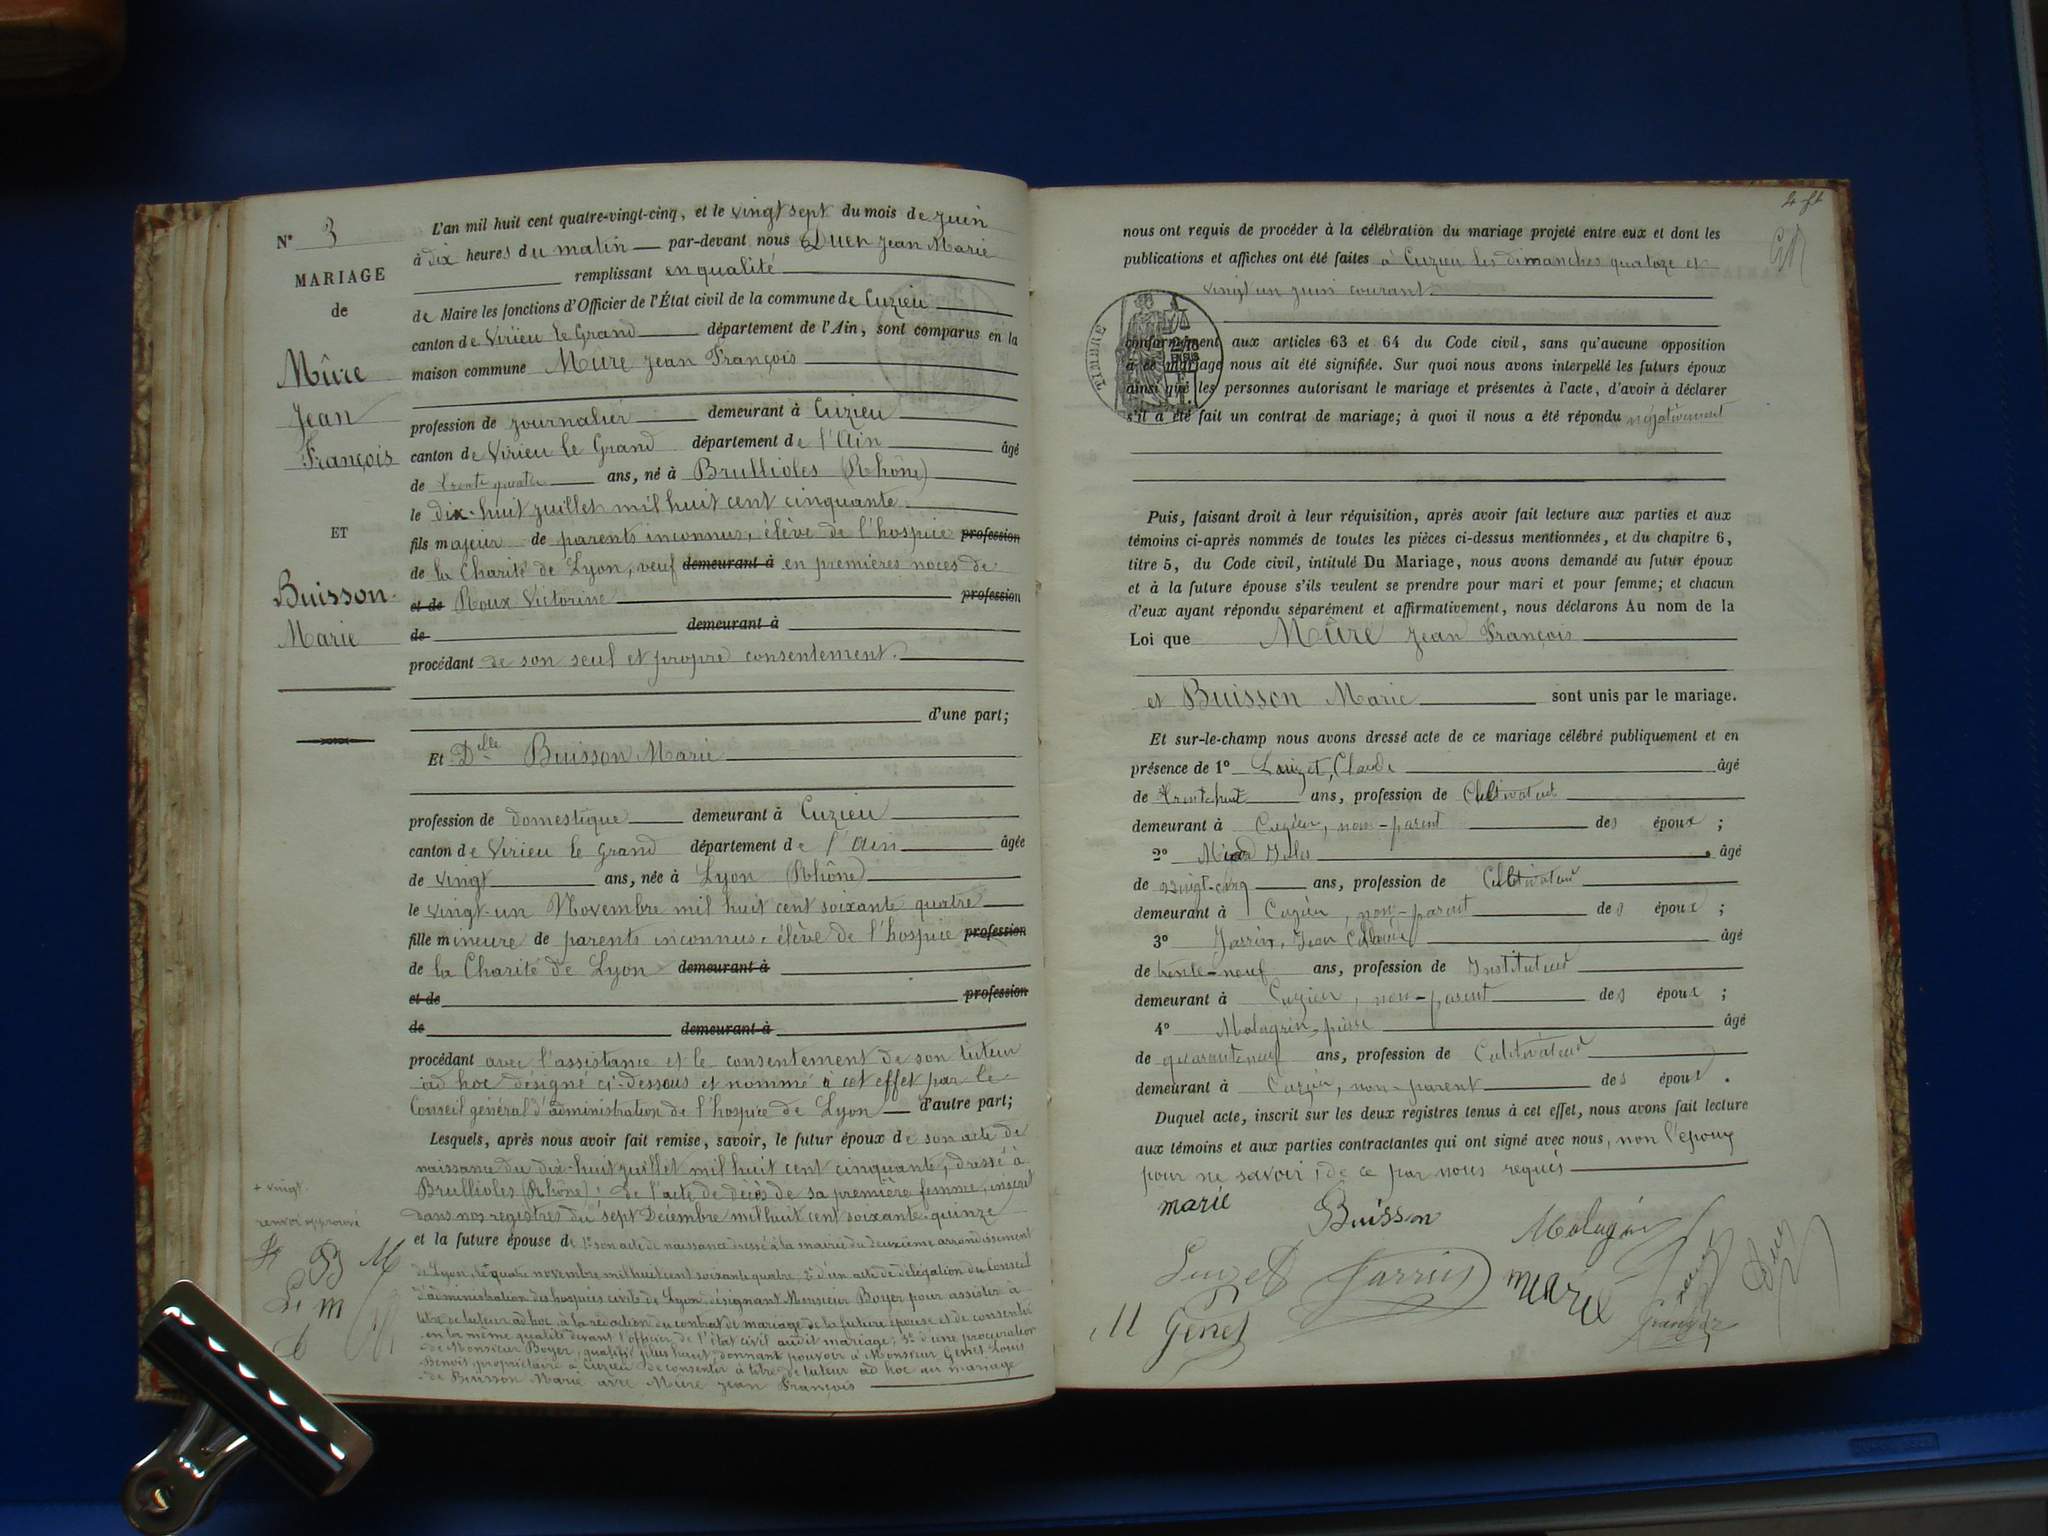 N° 3
MARIAGE
de
Mûre
Jean
François
ET
Buisson
Marie
L'an mil huit cent quatre-vingt-cinq, et le vingt sept du mois de juin
à dix heures du matin par-devant nous Duer Jean Marie
remplissant en qualité
de Maire les fonctions d'Officier de l'État civil de la commune de Cuzieu
canton de Virieu le Grand département de l'Ain, sont comparus en la
maison commune Mûre Jean François
profession de journalier demeurant à Cuzieu
canton de Virieu le Grand département de l'Ain âgé
de trente quatre ans, né à Brullioles (Rhône)
le dix-huit juillet mil huit cent cinquante
fils majeur de parents inconnus, élève de l'hospice profession
de la Charité de Lyon, veuf demeurant à en premières noces de
et de Roux Victorine profession
de demeurant à
procédant de son seul et propre consentement.
d'une part;
Et Delle Buisson Marie
profession de domestique demeurant à Cuzieu
canton de Virieu le Grand département de l'Ain âgée
de vingt ans, née à Lyon (Rhône)
le vingt-un Novembre mil huit cent soixante quatre
fille mineure de parents inconnus, élève de l'hospice profession
de la Charité de Lyon demeurant à
et de profession
de demeurant à
procédant avec l'assistance et le consentement de son tuteur
ad hoc désigné ci-dessous et nommé à cet effet par le
Conseil général d'administration de l'hospice de Lyon d'autre part;
Lesquels, après nous avoir fait remise, savoir, le futur époux de son acte de
naissance du dix-huit juillet mil huit cent cinquante, dressé à
Brullioles (Rhône); de l'acte de décès de sa première femme, inscrit
dans nos registres du sept Décembre mil huit cent soixante-quinze
et la future épouse de 1° son acte de naissance dressé à la mairie du deuxième arrondissement
de Lyon, le + quatre novembre mil huit cent soixante quatre; 2° d'un acte de délégation du Conseil
d'administration des hospices civils de Lyon désignant Monsieur Boyer pour assister à
titre de tuteur ad hoc à la rédaction du contrat de mariage de la future épouse et de consentir
en la même qualité devant l'officier de l'état civil audit mariage; 3° d'une procuration
de Monsieur Boyer, qualifié plus haut, donnant pouvoir à Monsieur Genet Louis
Benoit, propriétaire à Cuzieu de consentir à titre de tuteur ad hoc au mariage
de Buisson Marie avec Mûre Jean François
+ vingt
renvoi approuvé
B M
m
nous ont requis de procéder à la célébration du mariage projeté entre eux et dont les
publications et affiches ont été faites à Cuzieu les dimanches quatorze et
vingt un juin courant.
TIMBRE
conformément aux articles 63 et 64 du Code civil, sans qu'aucune opposition
à ce mariage nous ait été signifiée. Sur quoi nous avons interpellé les futurs époux
ainsi que les personnes autorisant le mariage et présentes à l'acte, d'avoir à déclarer
s'il a été fait un contrat de mariage; à quoi il nous a été répondu négativement
Puis, faisant droit à leur réquisition, après avoir fait lecture aux parties et aux
témoins ci-après nommés de toutes les pièces ci-dessus mentionnées, et du chapitre 6,
titre 5, du Code civil, intitulé Du Mariage, nous avons demandé au futur époux
et à la future épouse s'ils veulent se prendre pour mari et pour femme; et chacun
d'eux ayant répondu séparément et affirmativement, nous déclarons Au nom de la
Loi que Mûre Jean François
et Buisson Marie sont unis par le mariage.
Et sur-le-champ nous avons dressé acte de ce mariage célébré publiquement et en
présence de 1° Luizet, Claude âgé
de trente-huit ans, profession de Cultivateur
demeurant à Cuzieu, non-parent des époux ;
2° Jules âgé
de vingt-cinq ans, profession de Cultivateur
demeurant à Cuzieu, non-parent des époux ;
3° Jarrin, Jean âgé
de trente-neuf ans, profession de Instituteur
demeurant à Cuzieu, non-parent des époux ;
4° Molagrin, pierre âgé
de quarante neuf ans, profession de Cultivateur
demeurant à Cuzieu, non-parent des époux .
Duquel acte, inscrit sur les deux registres tenus à cet effet, nous avons fait lecture
aux témoins et aux parties contractantes qui ont signé avec nous, non l'époux
pour ne savoir, de ce par nous requis
marie Buisson
Luizet Jarrin
Genet